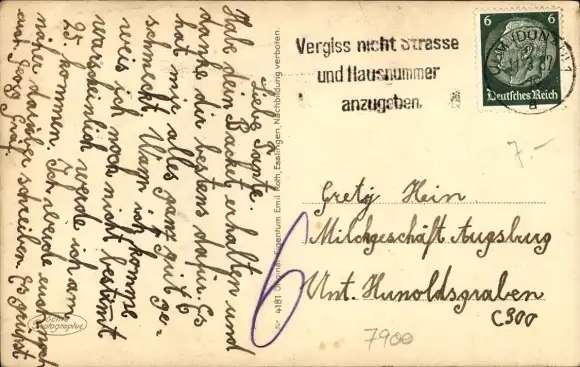 Liebe Tante.
Habe dein Packet erhalten und
danke dir bestens dafür. Es
hat mir alles ganz gut ge-
schmeckt. Wann ich komme
weis ich noch nicht bestimmt
warscheinlich werde ich am
25. kommen. Ich werde euch noch
näher darüber schreiben. Es grüsst
euch Georg Graf.
Echte Photographie
Nr. 4181 Original-Eigentum Emil Roth, Esslingen. Nachbildung verboten.
Vergiss nicht Strasse
und Hausnummer
anzugeben.
6 6
Deutsches Reich
7.-
6
Grety Hein
Milchgeschäft Augsburg
Unt. Hunoldsgraben
C 300
7900